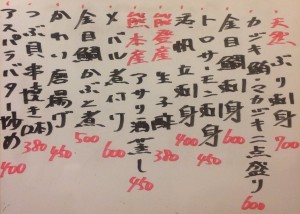 天然 ぶり刺身 900
カジキ鮪マカジキ二点盛り 600
金目鯛刺身 600
トロサーモン刺身 700
青森産 帆立刺身 400
熊本産 生子酢 380
アサリ酒蒸し 450
メバル煮付け 600
金目鯛かぶと煮 500
かれい唐揚げ 450
つぶ貝串焼き(2本) 380
アスパラバター炒め 400